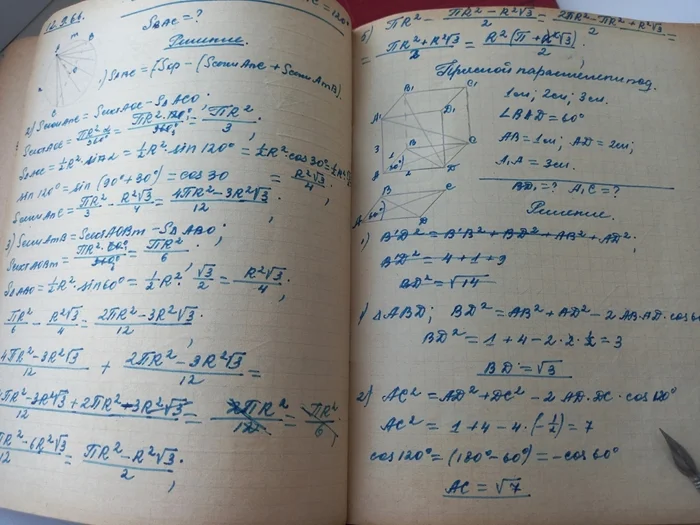 16.9.66.
S_BAC = ?
Решение.
1) S_BAC = [S_кр − (S_сегм AnC + S_сегм AmB).
2) S_сегм AnC = S_сект AOC − S_ΔACO;
S_сект AOC = πR²·α/360° = πR²·120°/360° = πR²/3;
S_ΔAOC = ½R² sin α = ½R² sin 120° = ½R² cos 30° = ½R²
sin 120° = sin (90°+30°) = cos 30 = R²√3/4;
S_сегм AnC = πR²/3 − R²√3/4 = 4πR²−3R²√3/12
3) S_сегм AmB = S_сект AOBm − S_ΔABO;
S_сект AOBm = πR²·60°/360° = πR²/6;
S_ΔABO = ½R² sin 60° = ½R²·√3/2 = R²√3/4;
πR²/6 − R²√3/4 = 2πR²−3R²√3/12;
4πR²−3R²√3/12 + 2πR²−3R²√3/12 =
4πR²−3R²√3+2πR²−3R²√3/12 = 2πR²/12 = πR²/6
πR²−6R²√3/12 = πR²−R²√3/2;
= 120°
5) πR² − πR²−R²√3/2 = 2πR²−πR²+R²√3/2 =
= πR²+R²√3/2 = R²(π+√3)/2;
Прямой параллелепипед.
B₁ C₁
A₁ D₁
3 B C
1 60° A 2 D
1см; 2см; 3см.
∠BAD = 60°
AB = 1см; AD = 2см;
A₁A = 3см.
BD₁ = ? A₁C = ?
B C
A 60° D
Решение.
1) B'D² = B'B² + BD² + AB² + AD²;
B'D² = 4 + 1 + 9
BD² = √14
1) ΔABD; BD² = AB² + AD² − 2 AB·AD·cos 60
BD² = 1 + 4 − 2·2·½ = 3
BD = √3
2) AC² = AD² + DC² − 2 AD·DC·cos 120°
AC² = 1 + 4 − 4·(−½) = 7
cos 120° = (180° − 60°) = −cos 60°
AC = √7